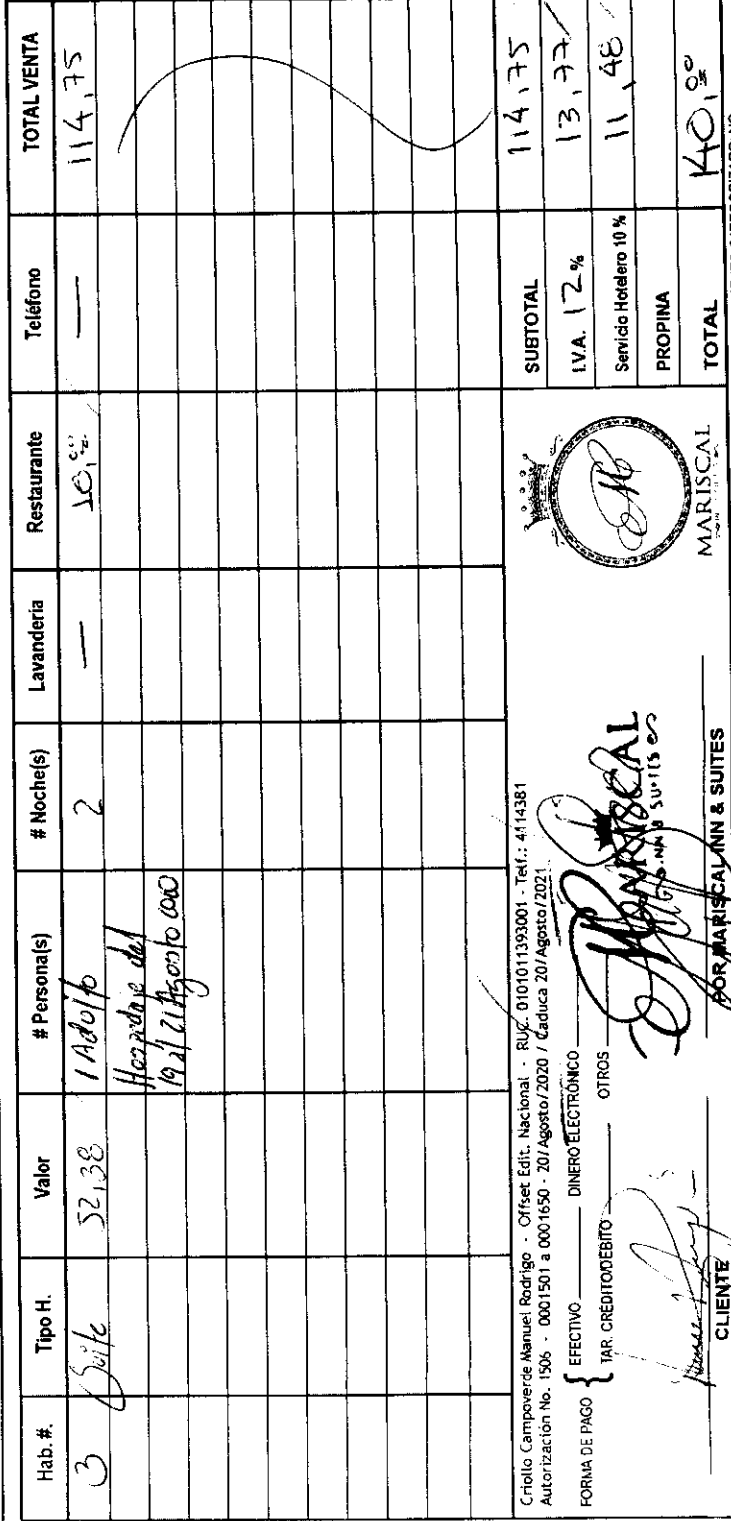 Hab. #. Tipo H. Valor # Persona(s) # Noche(s) Lavandería Restaurante Teléfono TOTAL VENTA
3 Suite 52,38 1 Adolfo 2 — 10,00 — 114,75
Hospedaje del
19 al 21 Agosto
Criollo Campoverde Manuel Rodrigo - Offset Edit. Nacional - RUC. 0101011393001 - Telf.: 4114381
Autorización No. 1506 - 0001501 a 0001650 - 20/Agosto/2020 / Caduca 20/Agosto/2021
FORMA DE PAGO { EFECTIVO DINERO ELECTRÓNICO
TAR. CRÉDITO/DEBITO OTROS
CLIENTE
MARISCAL
INN & SUITES
POR MARISCAL INN & SUITES
MARISCAL
SUBTOTAL 114,75
I.V.A. 12% 13,77
Servicio Hotelero 10 % 11,48
PROPINA
TOTAL 140,00